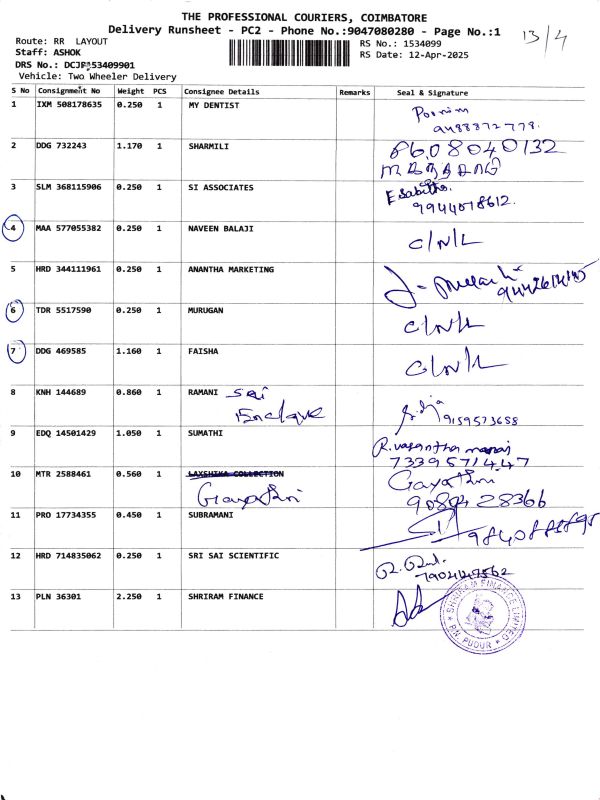 THE PROFESSIONAL COURIERS, COIMBATORE
Delivery Runsheet - PC2 - Phone No.:9047080280 - Page No.:1
13/4
Route: RR LAYOUT
RS No.: 1534099
Staff: ASHOK
RS Date: 12-Apr-2025
DRS No.:
Vehicle: Two Wheeler Delivery
S No Consignment No Weight PCS Consignee Details Remarks Seal & Signature
1 IXM 508178635 0.250 1 MY DENTIST
9488872778.
2 DDG 732243 1.170 1 SHARMILI 8608040132
3 SLM 368115906 0.250 1 SI ASSOCIATES E Sabitha.
9944018612.
4 MAA 577055382 0.250 1 NAVEEN BALAJI C/N/L
5 HRD 344111961 0.250 1 ANANTHA MARKETING
6 TDR 5517590 0.250 1 MURUGAN C/N/L
7 DDG 469585 1.160 1 FAISHA C/N/L
8 KNH 144689 0.860 1 RAMANI Sai
Enclave 9159573658
9 EDQ 14501429 1.050 1 SUMATHI R. vasantha
7339571447
10 MTR 2588461 0.560 1 LAXSHIKA COLLECTION Gayathri
Gayathri 9080428366
11 PRO 17734355 0.450 1 SUBRAMANI
12 HRD 714835062 0.250 1 SRI SAI SCIENTIFIC
7904447562
13 PLN 36301 2.250 1 SHRIRAM FINANCE
SHRIRAM FINANCE LIMITED
P.N. PUDUR